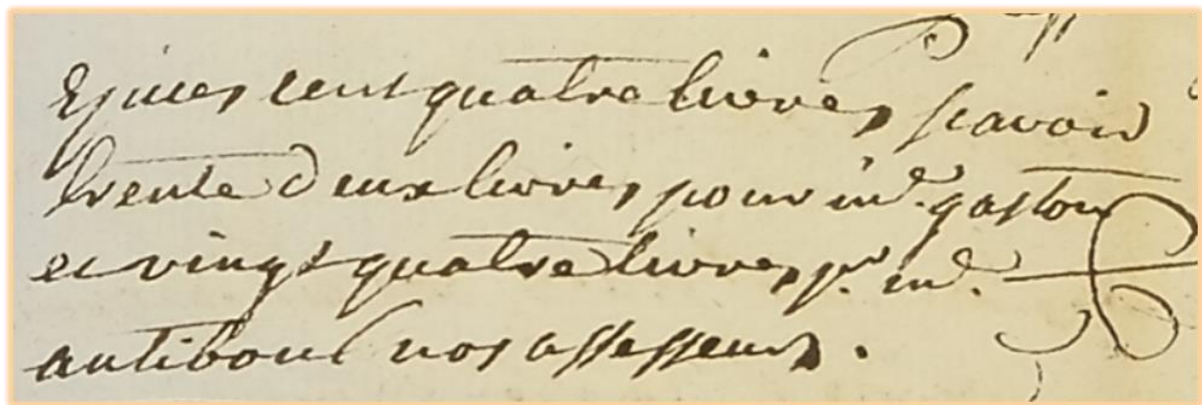 Epices cent quatre livres, scavoir
trente deux livres, pour mr. gaston
et vingt quatre livres, pr. mr.
antiboul nos assesseurs.